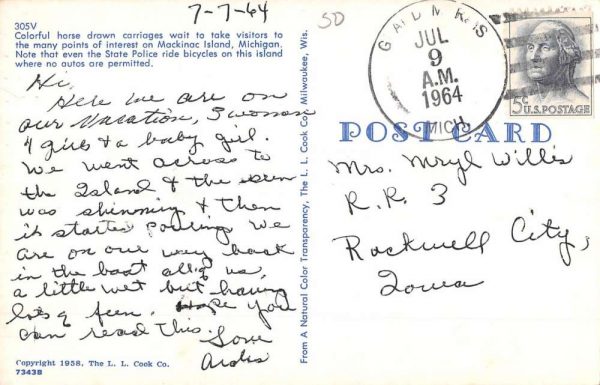 7-7-64
50
305V
Colorful horse drawn carriages wait to take visitors to
the many points of interest on Mackinac Island, Michigan.
Note that even the State Police ride bicycles on this island
where no autos are permitted.
Hi,
Here we are on
our Vacation, 3 woman
4 girls & a baby girl.
We went across to
the Island & the sun
was shinning & then
it started pouring. We
are on our way back
in the boat all of us,
a little wet but having
lots of fun. Hope you
can read this.
Love
Ardis
Copyright 1958, The L. L. Cook Co.
73438
From A Natural Color Transparency, The L. L. Cook Co., Milwaukee, Wis.
JUL
9
A.M.
1964
MICH
5c U.S. POSTAGE
POST CARD
Mrs. Meryl Willis
R.R. 3
Rockwell City,
Iowa